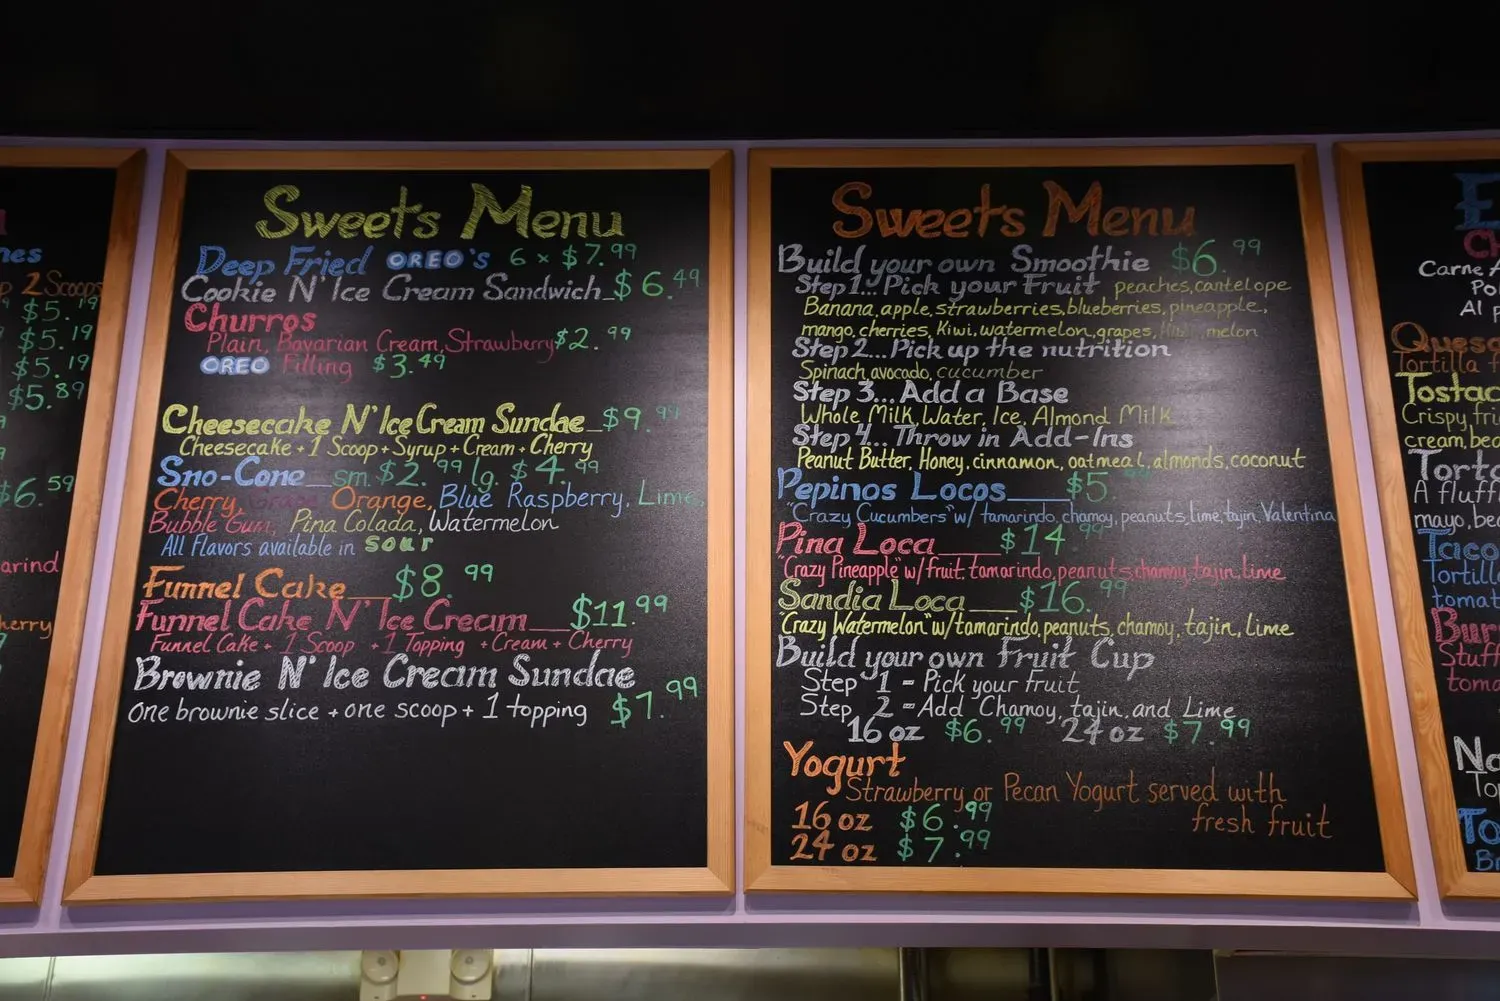 nes
p 2 Scoops
$5.19
$5.19
$5.19
$5.89
$6.59
arind
herry
Sweets Menu
Deep Fried OREO's 6 x $7.99
Cookie N' Ice Cream Sandwich $6.49
Churros
Plain, Bavarian Cream, Strawberry $2.99
OREO Filling $3.49
Cheesecake N' Ice Cream Sundae $9.99
Cheesecake + 1 Scoop + Syrup + Cream + Cherry
Sno-Cone sm. $2.99 lg. $4.99
Cherry, Grape, Orange, Blue Raspberry, Lime,
Bubble Gum, Pina Colada, Watermelon
All Flavors available in sour
Funnel Cake $8.99
Funnel Cake N' Ice Cream $11.99
Funnel Cake + 1 Scoop + 1 Topping + Cream + Cherry
Brownie N' Ice Cream Sundae
One brownie slice + one scoop + 1 topping $7.99
Sweets Menu
Build your own Smoothie $6.99
Step 1... Pick your Fruit peaches, cantelope
Banana, apple, strawberries, blueberries, pineapple,
mango, cherries, Kiwi, watermelon, grapes, melon
Step 2... Pick up the nutrition
Spinach, avocado, cucumber
Step 3... Add a Base
Whole Milk, Water, Ice, Almond Milk
Step 4... Throw in Add-Ins
Peanut Butter, Honey, cinnamon, oatmeal, almonds, coconut
Pepinos Locos $5.99
"Crazy Cucumbers" w/ tamarindo, chamoy, peanuts, lime, tajin, Valentina
Pina Loca $14.99
"Crazy Pineapple" w/ fruit, tamarindo, peanuts, chamoy, tajin, lime
Sandia Loca $16.99
"Crazy Watermelon" w/ tamarindo, peanuts, chamoy, tajin, Lime
Build your own Fruit Cup
Step 1 - Pick your fruit
Step 2 - Add Chamoy, tajin, and Lime
16 oz $6.99 24 oz $7.99
Yogurt
Strawberry or Pecan Yogurt served with
fresh fruit
16 oz $6.99
24 oz $7.99
E
Ch
Carne A
Po
Al p
Quesa
Tortilla f
Tostac
Crispy fri
cream, bea
Torta
A fluff
mayo, bea
Taco
Tortill
tomat
Bur
Stuff
toma
Na
To
To
B